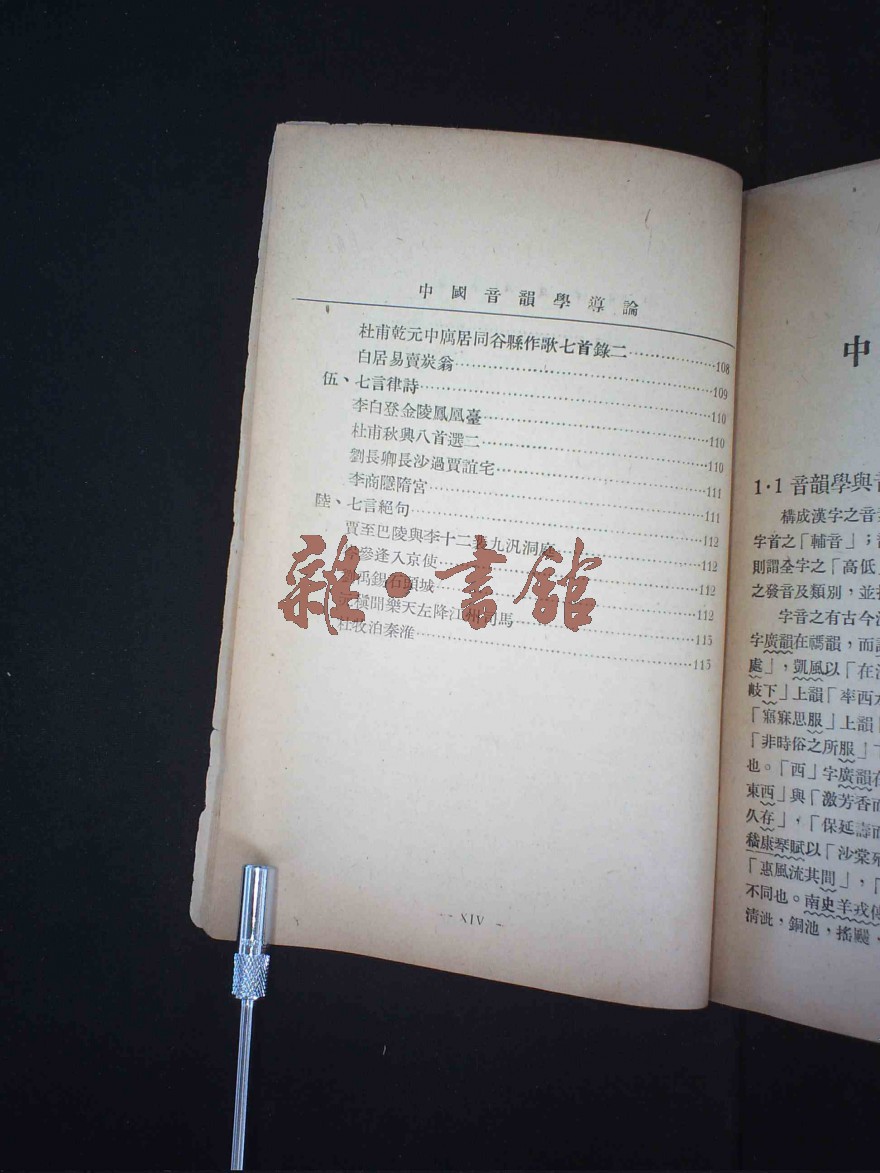 中國音韻學導論
杜甫乾元中寓居同谷縣作歌七首錄二……108
白居易賣炭翁……109
伍、七言律詩……110
李白登金陵鳳凰臺……110
杜甫秋興八首選二……110
劉長卿長沙過賈誼宅……111
李商隱隋宮……111
陸、七言絕句……112
賈至巴陵與李十二裴九汎洞庭……112
岑參逢入京使……112
劉禹錫石頭城……112
元稹聞樂天左降江州司馬……113
杜牧泊秦淮……113
XIV
雜·書館
中
1·1 音韻學與音
構成漢字之音
字首之「輔音」；
則謂全字之「高低」
之發音及類別，並
字音之有古今
字廣韻在禡韻，而
處」，凱風以「在
岐下」上韻「率西水
「寤寐思服」上韻
「非時俗之所服」
也。「西」字廣韻在
東西」與「激芳香而
久存」，「保延壽而
嵇康琴賦以「沙棠
「惠風流共間」，「
不同也。南史羊戎傳
清泚，銅池，搖颺，